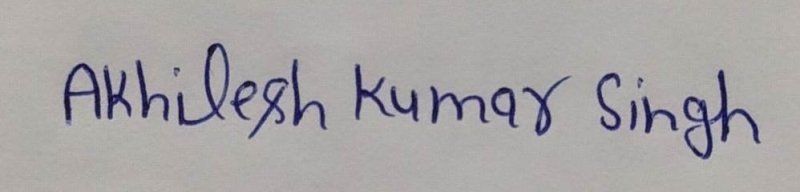 Akhilesh Kumar Singh